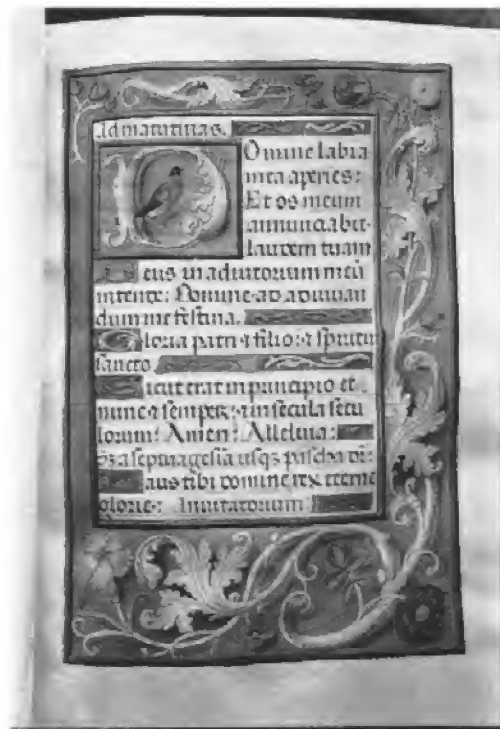 Ad matutinas.
Domine labia
mea aperies:
Et os meum
annunciabit
laudem tuam
Deus in adiutorium meū
intende: Domine ad adiuuan
dum me festina.
Gloria patri ⁊ filio: ⁊ spiritui
sancto.
Sicut erat in principio et
nunc ⁊ semper: ⁊ in secula secu
lorum: Amen: Alleluia:
a septuagesīa usq3 pascha
Laus tibi domine rex eterne
glorie: Inuitatorium: